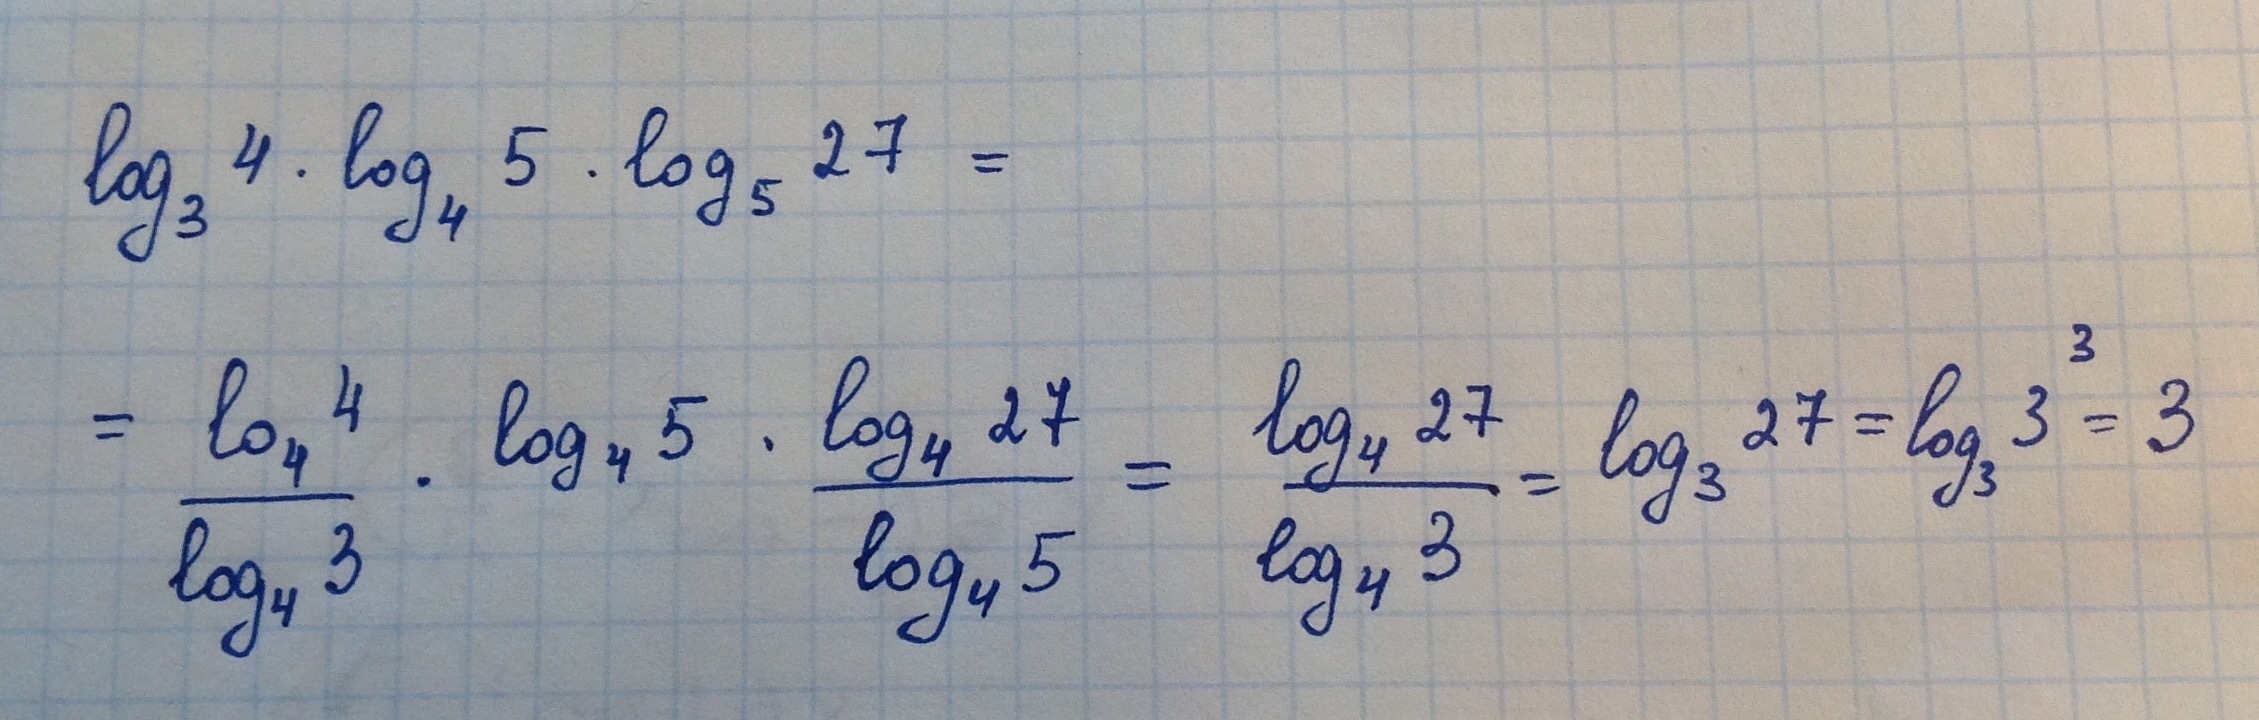 log₃ 4 · log₄ 5 · log₅ 27 =
= lo₄ 4 / log₄ 3 · log₄ 5 · log₄ 27 / log₄ 5 = log₄ 27 / log₄ 3 = log₃ 27 = log₃ 3³ = 3